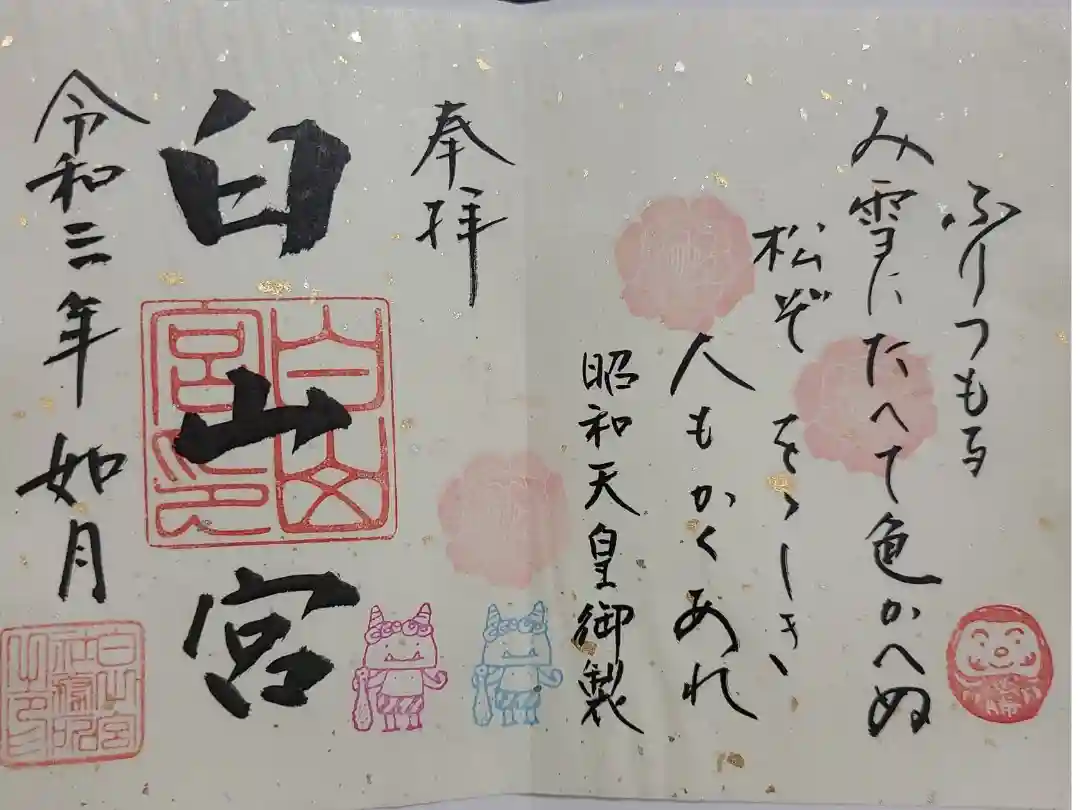 ふりつもる
み雪にたへて色かへぬ
松ぞをゝしき
人もかくあれ
昭和天皇御製
奉拝
白山宮
白山宮印
令和三年 如月
白山宮社務所之印